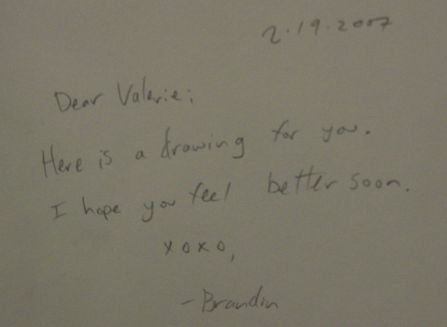 2.19.2007
Dear Valerie:
Here is a drawing for you.
I hope you feel better soon.
xoxo,
- Brandin